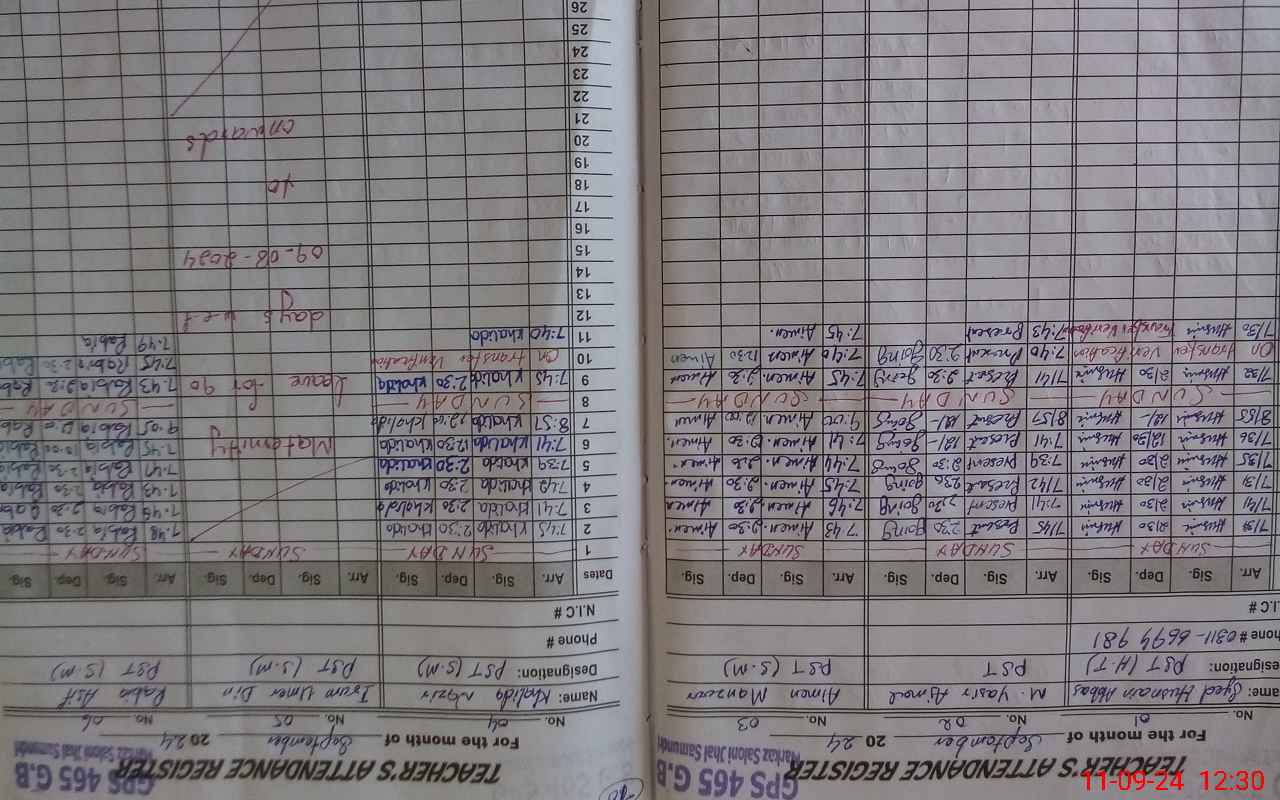 TEACHER'S ATTENDANCE REGISTER
GPS 465 G.B
Markaz Saloni Jhal Samundri
For the month of September 2024
No. 01 No. 02 No. 03
ame: Syed Husnain Abbas M. Yasir Ajmal Aimen Manzoor
esignation: PST (H.T) PST PST (S.M)
hone # 0311-6694981
N.I.C #
Arr. Sig. Dep. Sig. Arr. Sig. Dep. Sig. Arr. Sig. Dep. Sig.
SUNDAY SUNDAY SUNDAY
Husnain 2/30 Husnain 7/45 Present 2:30 going 7:48 Aimen. 2:30 Aimen.
7/41 Husnain 2/30 Husnain 7:41 present 2:30 going 7:46 Aimen. 2:30 Aimen
7/31 Husnain 2/30 Husnain 7/42 Present 2:30 going 7:45 Aimen. 2:30 Aimen.
7/35 Husnain 2/30 Husnain 7:39 present 2:30 going 7:44 Aimen. 2:30 Aimen.
7/36 Husnain 12/30 Husnain 7:41 present 12/- going 7:41 Aimen. 12:30 Aimen.
8/55 Husnain 12/- Husnain 8/57 Present 12/- going 9:00 Aimen 12:00 Aimen
SUNDAY SUNDAY SUNDAY
7/32 Husnain 2/30 Husnain 7/41 Present 2:30 going 7:45 Aimen. 2:30 Aimen
On transfer Verification Husnain 7:40 Present 2:30 going 7:40 Aimen 12:30 Aimen
7/30 Husnain Transfer Verification 7:43 Present 7:45 Aimen.
TEACHER'S ATTENDANCE REGISTER
GPS 465 G.B
Markaz Saloni Jhal Samundri
For the month of September 2024
No. 04 No. 05 No. 06
Name: Khalida Nazir Irum Umer Din Rabia Asif
Designation: PST (S.M) PST (S.M) PST (S.M)
Phone #
N.I.C #
Dates Arr. Sig. Dep. Sig. Arr. Sig. Dep. Sig. Arr. Sig. Dep. Sig.
1 SUNDAY SUNDAY SUNDAY
2 7:45 Khalida 2:30 Khalida 7:48 Rabia 2:30 Rabia
3 7:41 Khalida 2:30 Khalida 7:46 Rabia 2:30 Rabia
4 7:42 Khalida 2:30 Khalida 7:43 Rabia 2:30 Rabia
5 7:39 Khalida 2:30 Khalida 7:41 Rabia 2:30 Rabia
6 7:41 Khalida 12:30 Khalida Maternity 7:45 Rabia Rabia
7 8:57 Khalida Khalida 9:05 Rabia Rab
8 SUNDAY SUNDAY
9 7:45 Khalida 2:30 Khalida Leave for 90 7:43 Rabia Rab
10 On transfer Verification 7:45 Rabia 2:30 Rabi
11 7:40 Khalida 7:49 Rabia
12 days w.e.f
13
14
15 09-08-2024
16
17
18 to
19
20
21 onwards
22
23
24
25
26
11-09-24 12:30